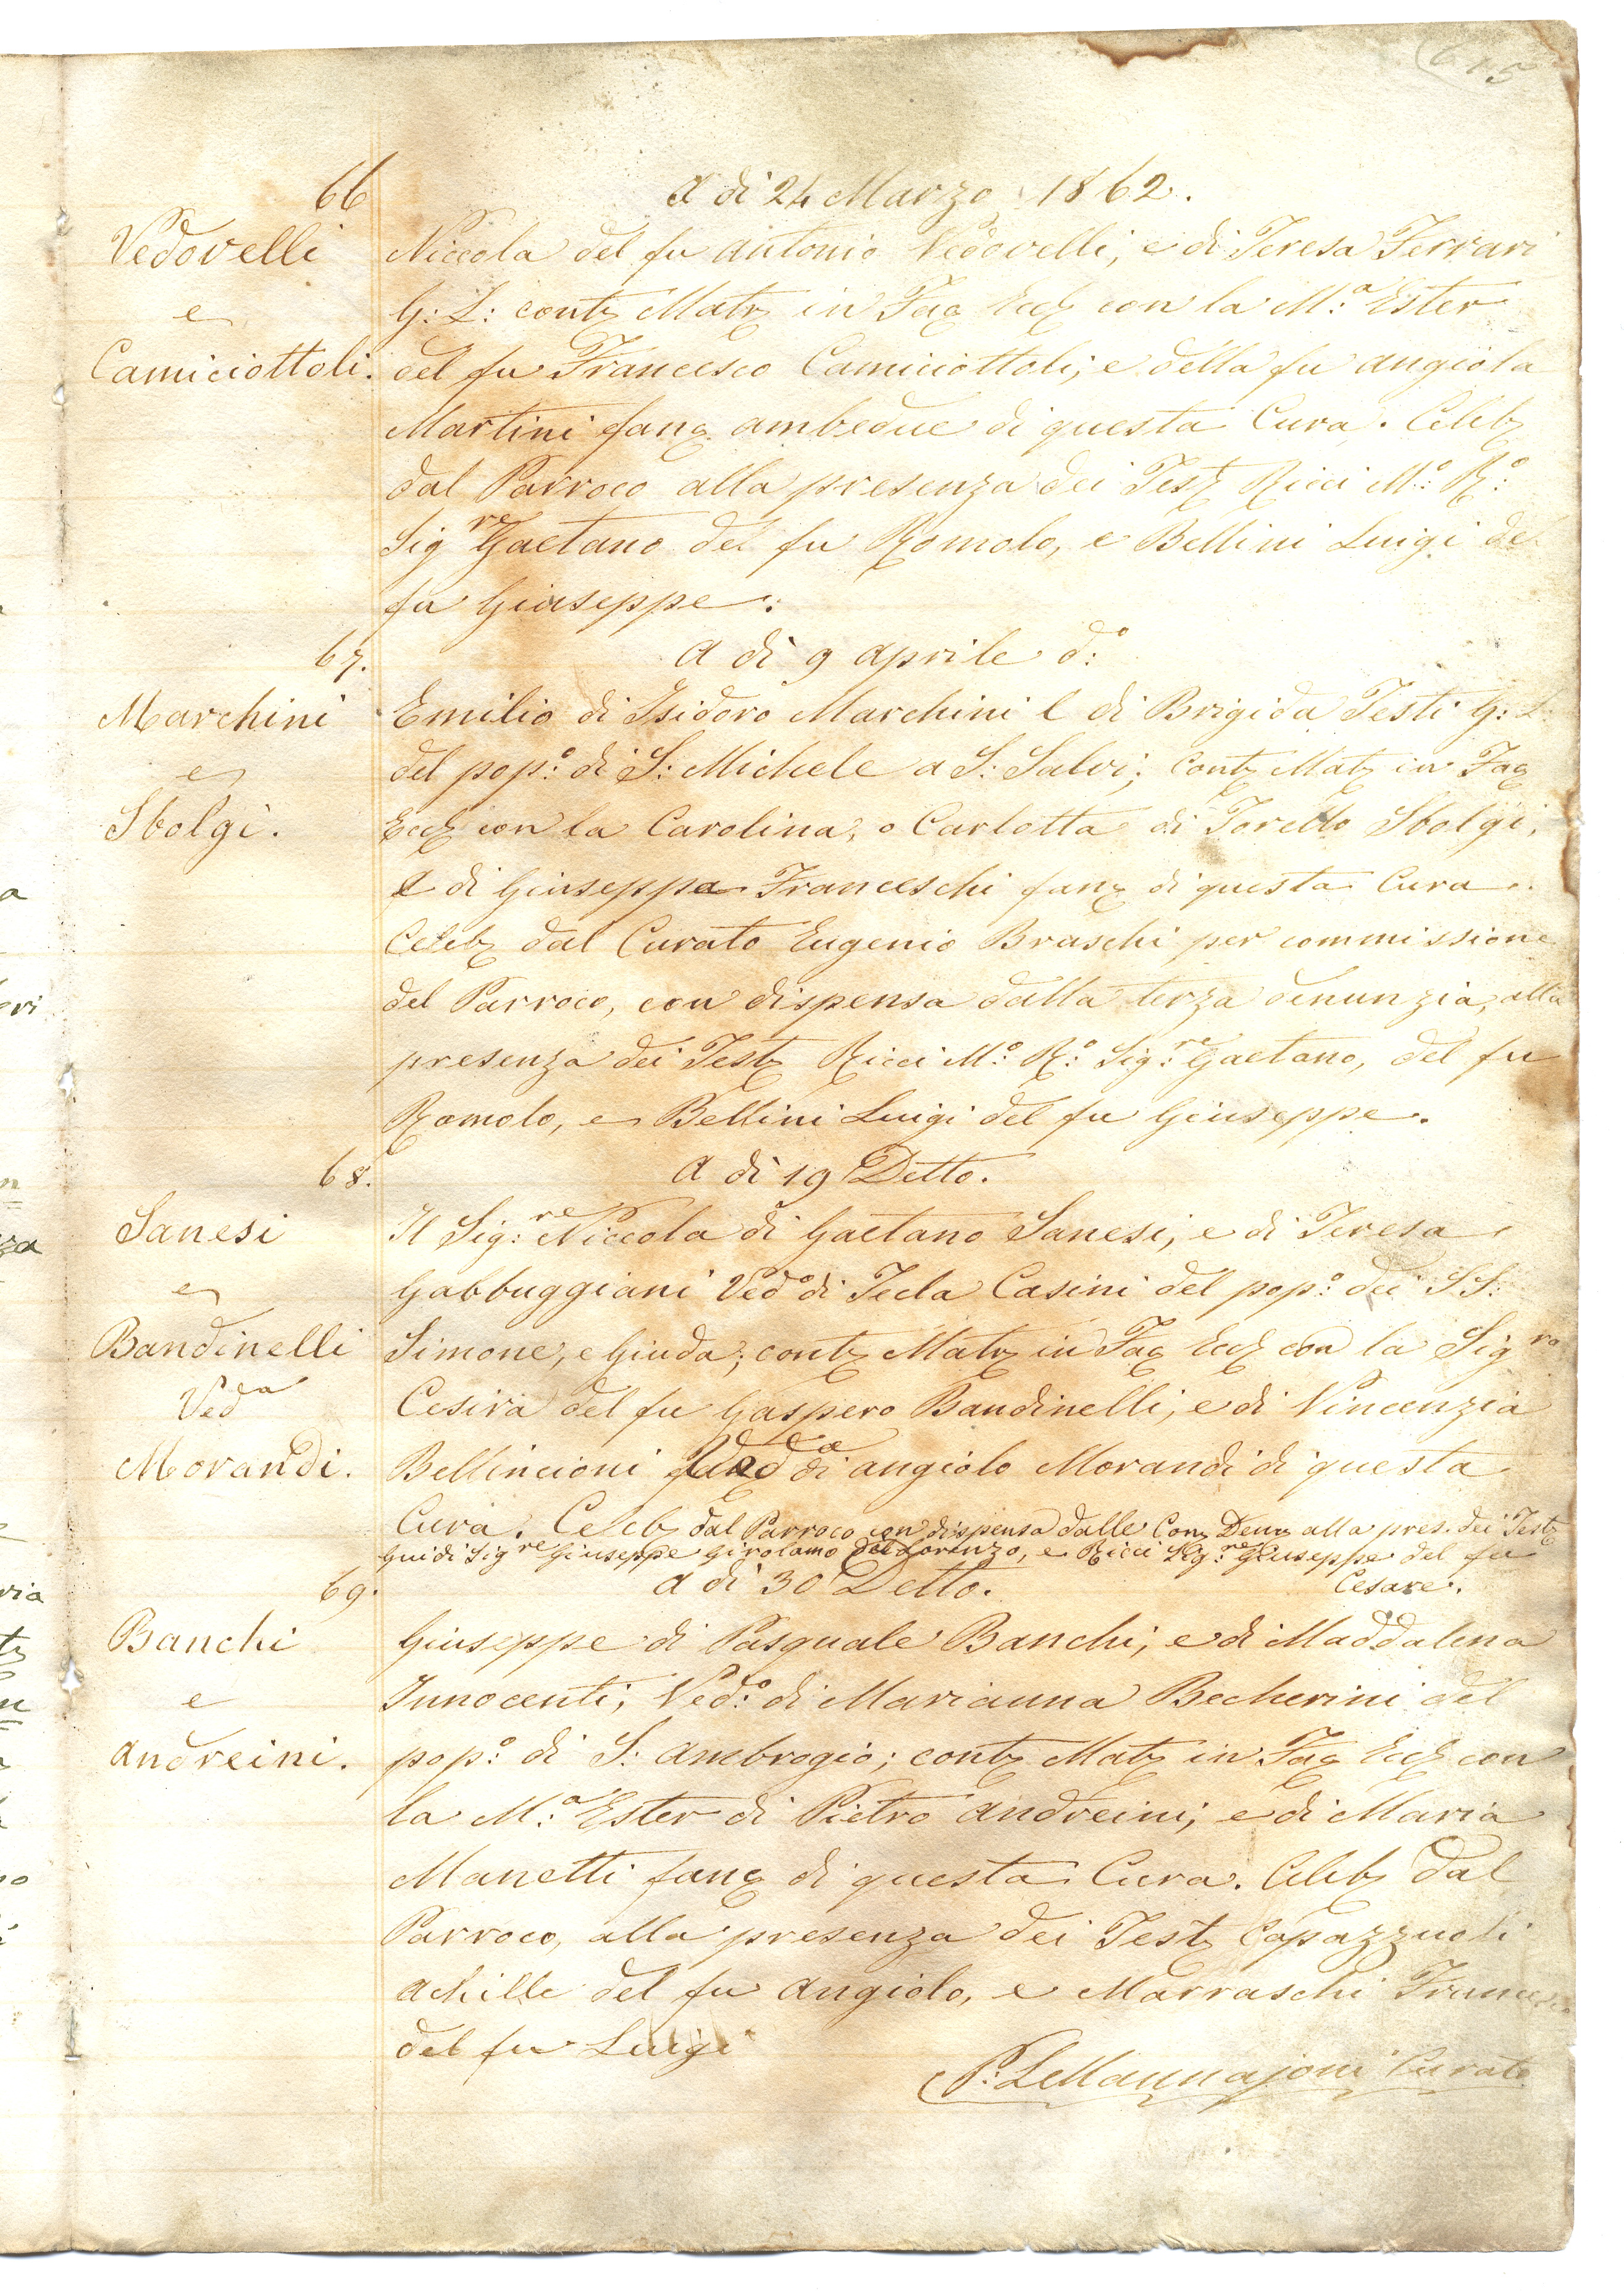 66
A di 24 Marzo 1862.
Vedovelli
e
Camiciottoli.
Niccola del fu Antonio Vedovelli, e di Teresa Ferrari
G: L: contz Matz in Fac Eccl con la M:ª Ester
del fu Francesco Camiciottoli; e della fu Angiola
Martini fanc. ambedue di questa Cura. Celebz
dal Parroco alla presenza dei Testz Ricci M:º R:º
Sigre Gaetano del fu Romolo, e Bellini Luigi del
fu Giuseppe.
67.
A di 9 Aprile d:º
Marchini
e
Sbolgi.
Emilio di Isidoro Marchini e di Brigida Testi G: L:
del pop:º di S: Michele a S: Salvi; Contz Matz in Fac
Eccl con la Carolina, o Carlotta di Torello Sbolgi,
e di Giuseppa Franceschi fanc di questa Cura.
Celebz dal Curato Eugenio Braschi per commissione
del Parroco, con dispensa dalla terza denunzia, alla
presenza dei Testz Ricci M:º R:º Sig:re Gaetano, del fu
Romolo, e Bellini Luigi del fu Giuseppe.
68.
A di 19 Detto.
Sanesi
e
Bandinelli
Veda
Morandi.
Il Sig:re Niccola di Gaetano Sanesi, e di Teresa
Gabbuggiani Vedº di Tecla Casini del pop:º dei SS:
Simone, e Giuda; contz Matz in Fac Eccl con la Sigra
Cesira del fu Gaspero Bandinelli, e di Vincenzia
Bellincioni Veda di Angiolo Morandi di questa
Cura. Celebz dal Parroco con dispensa dalle Conz Denz alla pres. dei Testz
Guidi Sigre Giuseppe Girolamo del Lorenzo, e Ricci Sig:re Giuseppe del fu
Cesare.
69.
A di 30 Detto.
Banchi
e
Andreini.
Giuseppe di Pasquale Banchi; e di Maddalena
Innocenti; Ved:º di Marianna Becherini del
pop:º di S: Ambrogio; contz Matz in Fac Eccl con
la M:ª Ester di Pietro Andreini; e di Maria
Manetti fanc di questa Cura. Celebz dal
Parroco, alla presenza dei Testz Capazzuoli
Achille del fu Angiolo, e Marraschi
del fu Luigi
P: LeMannajoni Curato